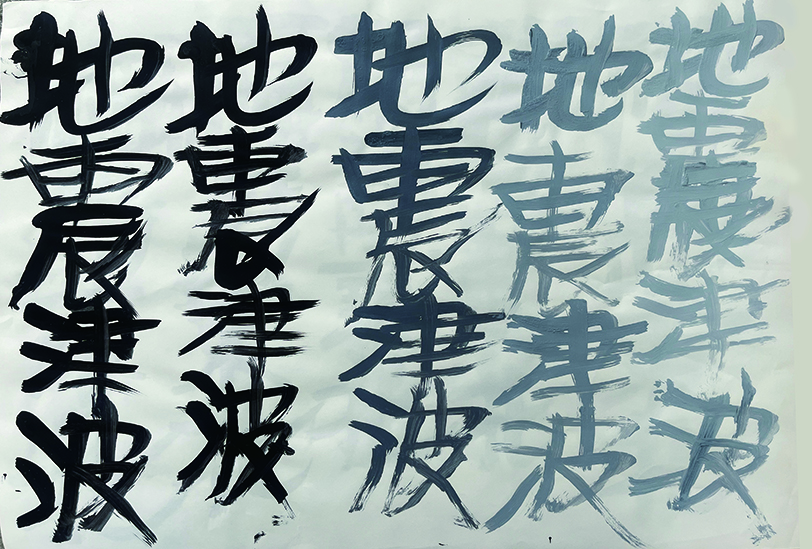 地震津波
地震津波
地震津波
地震津波
地震津波